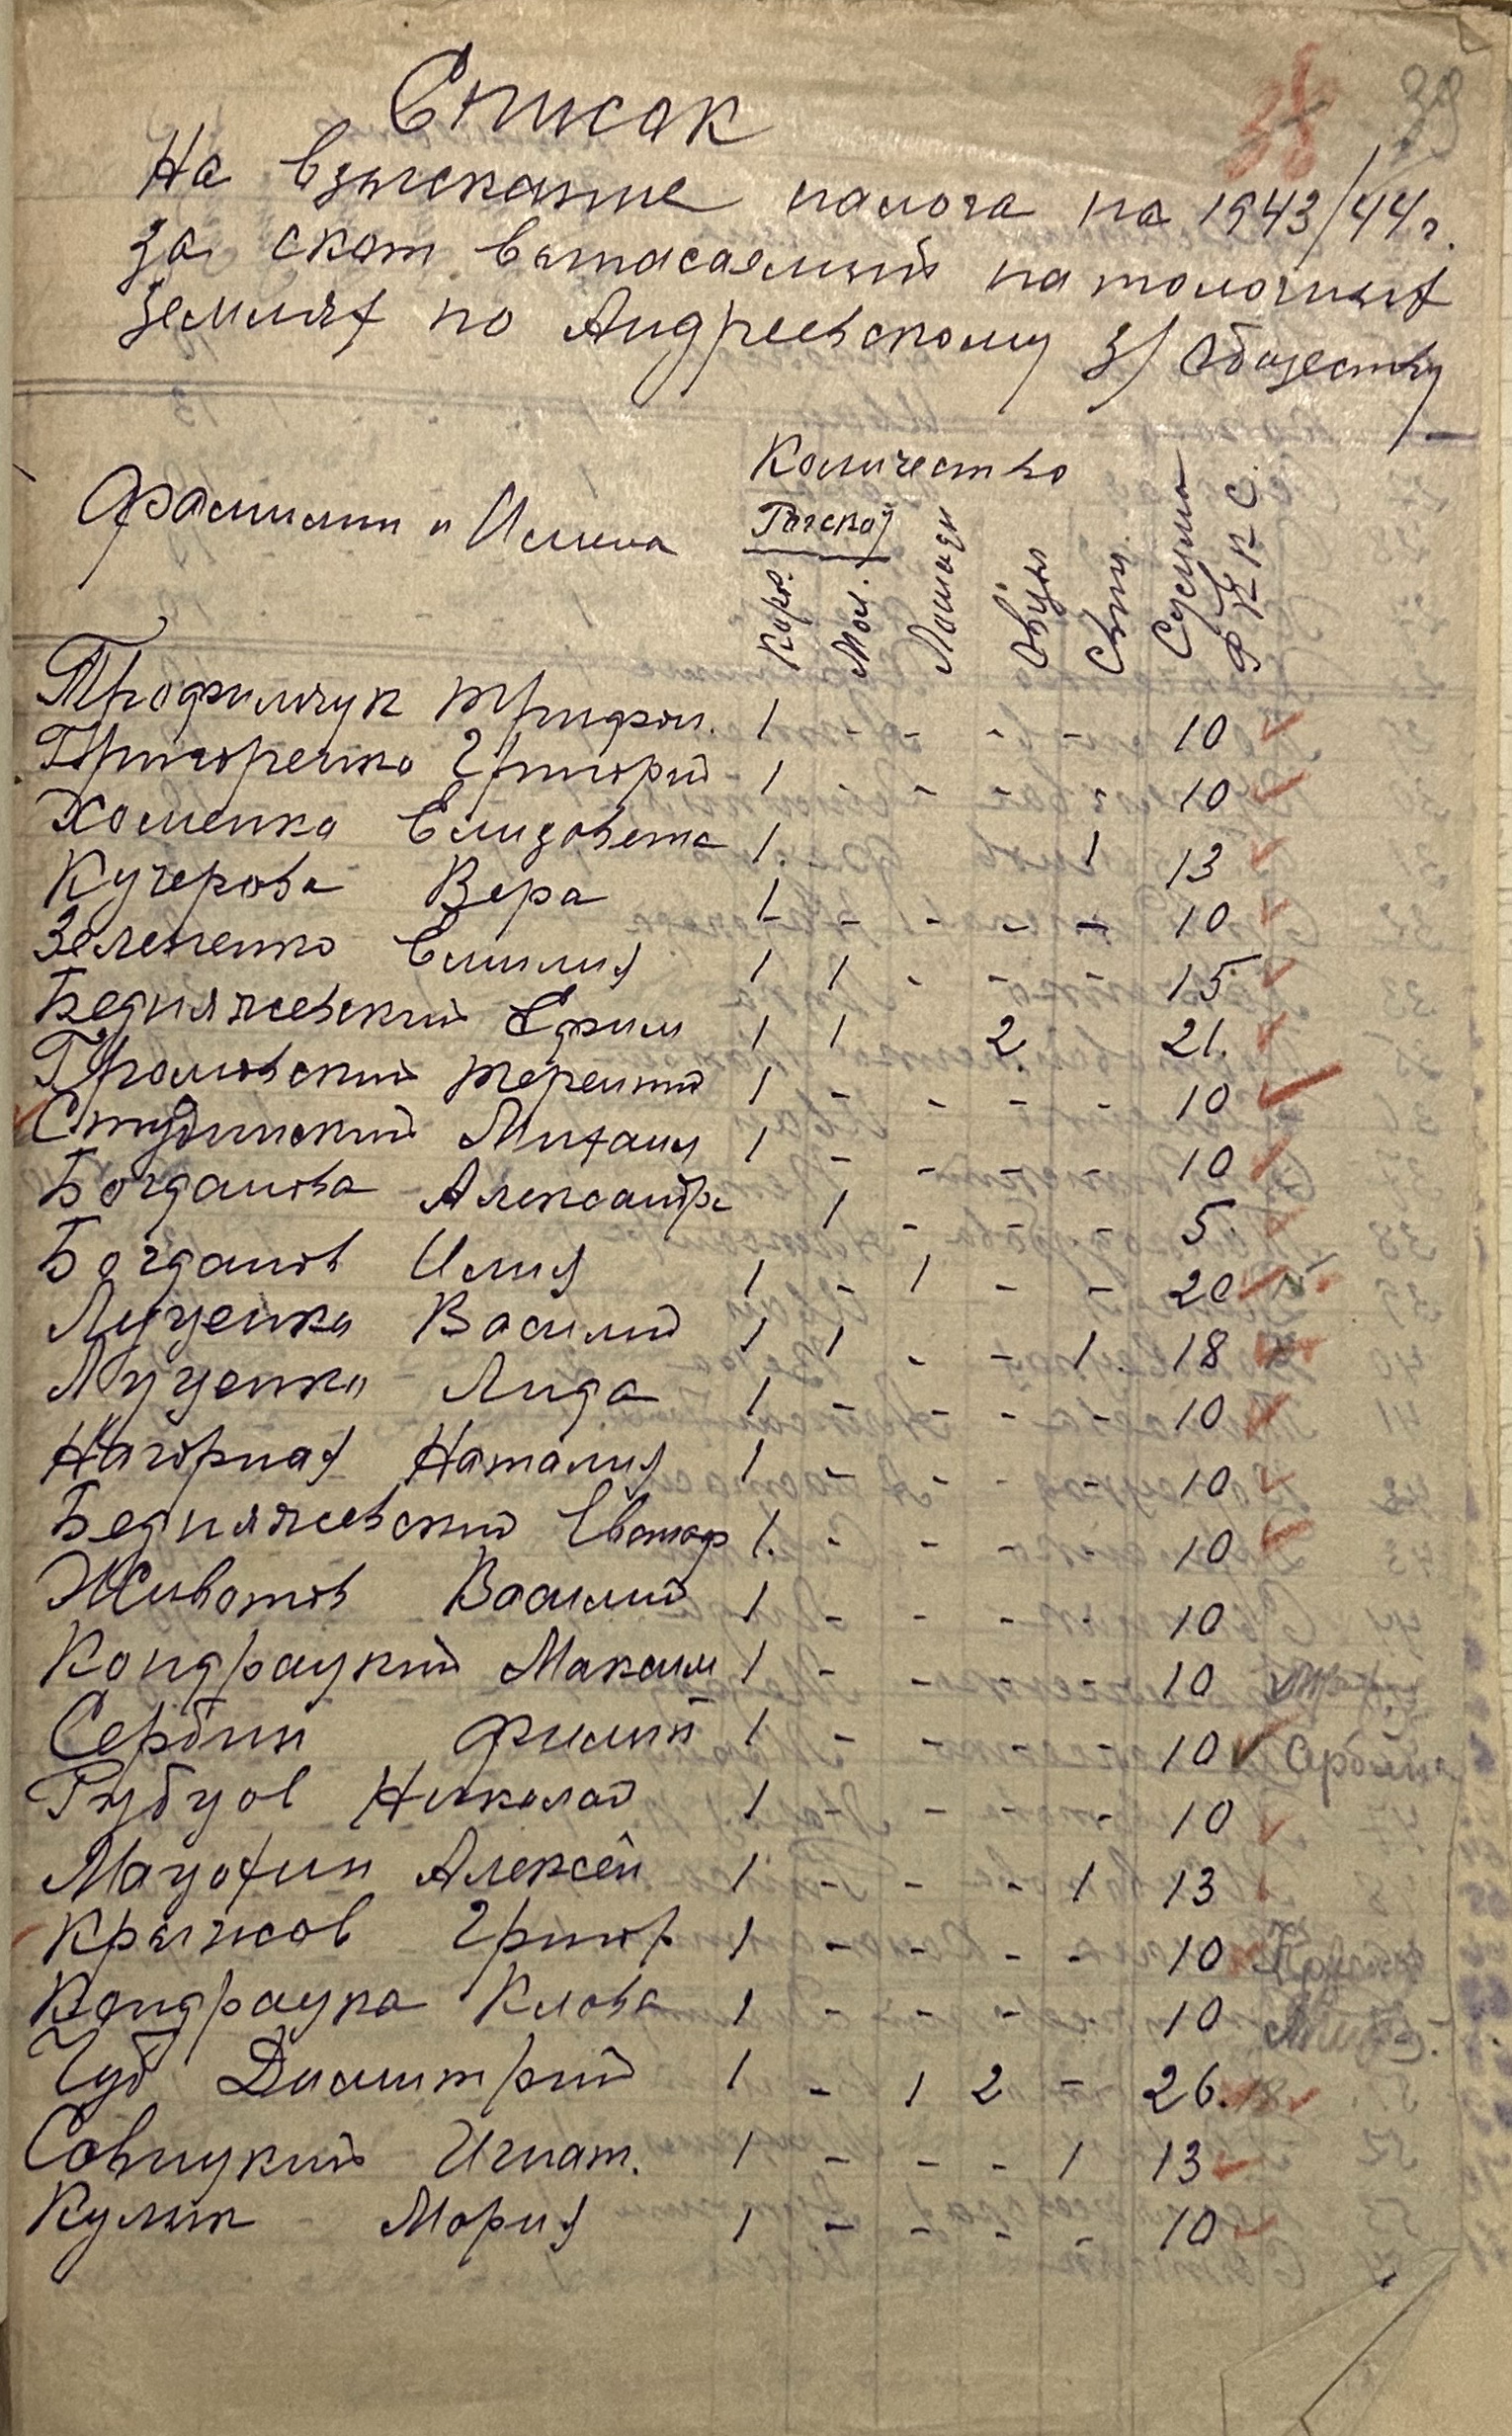 38 39
Список
На взыскание налога на 1943/44 г.
за скот выпасаемый на толочных
землях по Андреевскому з/обществу
Фамилии и Имена Количество
Рог скот
Коров. Мол. Лошади Овцы Свин. Сумма
Р К К С
Трофимчук Трифон. 1 - - - - 10
Григоренко Григорий 1 - - - 10
Хоменко Елизовета 1. - 1 13
Кучерова Вера 1 - - - - 10
Зелененко Емилия 1 1 - - - 15
Бедняжевский Ефим 1 1 2 21.
Терентий 1 - - - - 10
Студинский Михаил 1 - - - - 10
Богданова Александра 1 - - - 5.
Богданов Илия 1 - 1 - - 20
Луценко Василий 1 1 - - 1. 18
Луценко Лида 1 - - - - 10
Нагорная Наталия 1 - - - - 10
Бедняжевский Евстаф 1. - - - - 10
Животов Василий 1 - - - - 10
Кондрацкий Максим 1 - - - - 10
Сербин Филип 1 - - - - 10 Сербина
Рубцов Николай 1 - - - - 10
Мацохин Алексей 1 - - - 1 13
Крыжов Григор 1 - - - - 10
Кондрацка Клава 1 - - - - 10
Чуб Дмитрий 1 - 1 2 - 26. 18
Савицкий Игнат. 1 - - - 1 13
Кулик Мория 1 - - - - 10